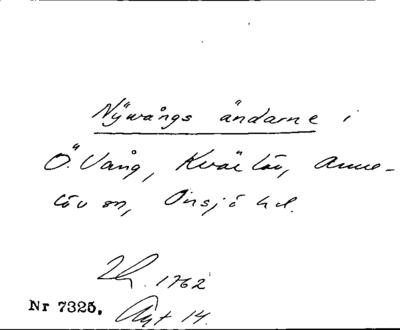 Nÿwångs ändarne i
Ö. Vång, Kvärlöv, Anne-
löv sn, Onsjö hd.
Lh. 1762
Nr 7325. Akt 14.